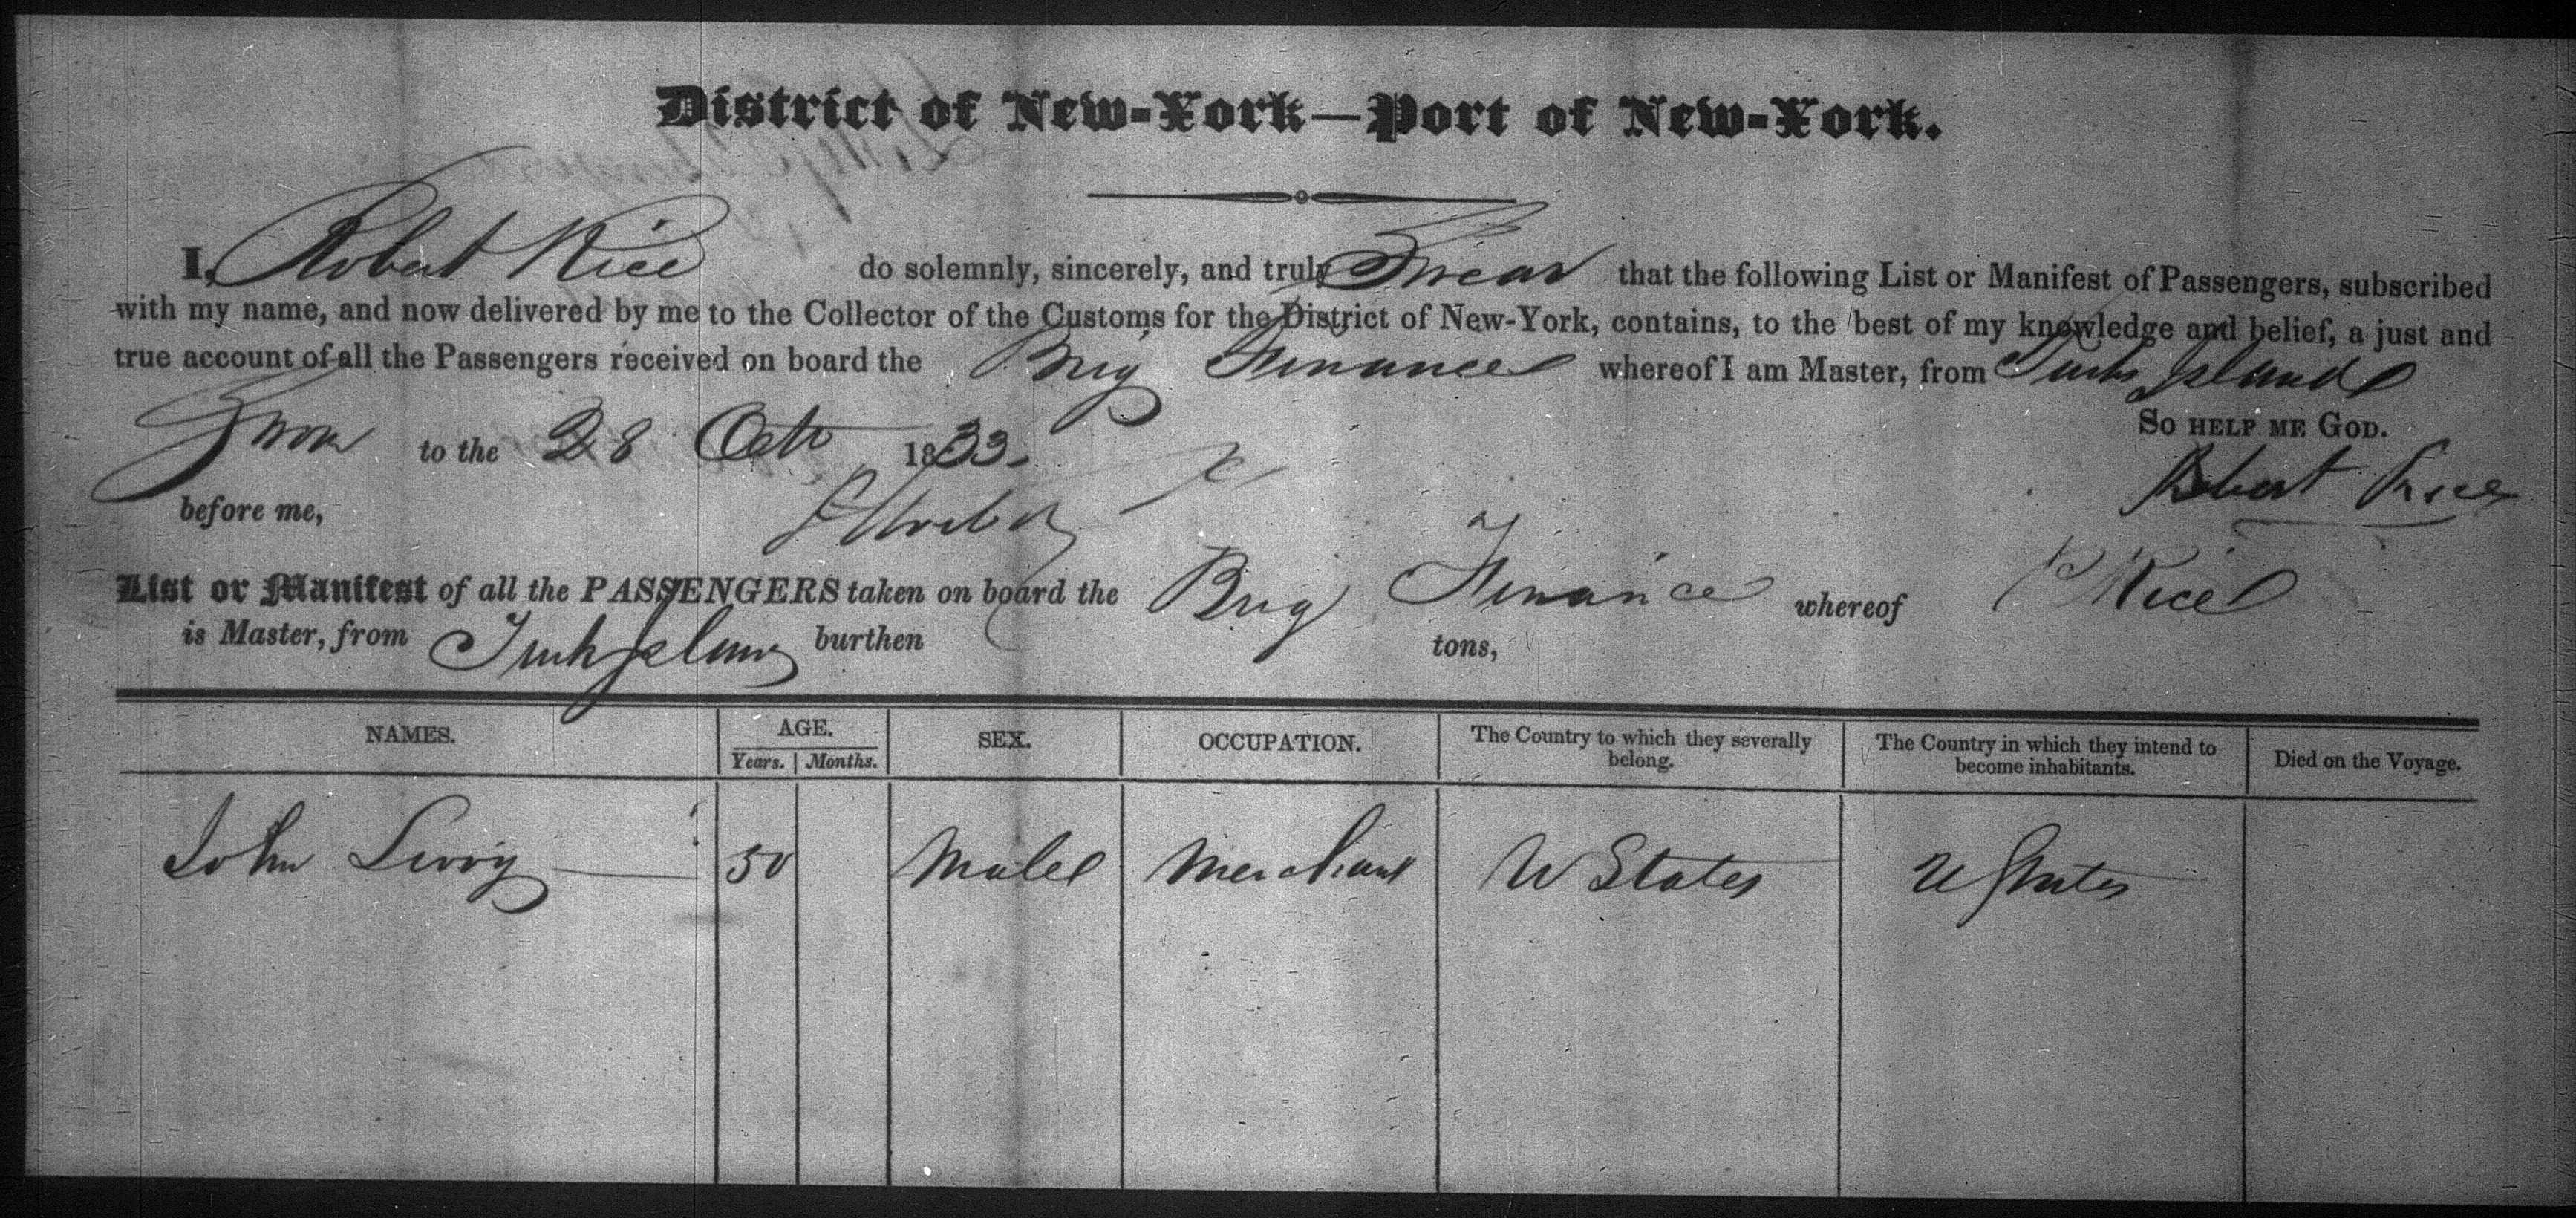 District of New-York—Port of New-York.
I, Robert Rice do solemnly, sincerely, and truly Swear that the following List or Manifest of Passengers, subscribed
with my name, and now delivered by me to the Collector of the Customs for the District of New-York, contains, to the best of my knowledge and belief, a just and
true account of all the Passengers received on board the Brig Finance whereof I am Master, from Turks Island
So help me God.
Sworn to the 28 Oct 1833.
Robert Rice
before me,
List or Manifest of all the PASSENGERS taken on board the Brig Finance whereof R Rice
is Master, from Turks Island burthen tons,
NAMES. AGE. SEX. OCCUPATION. The Country to which they severally belong. The Country in which they intend to become inhabitants. Died on the Voyage.
Years. Months.
John 50 Male Merchant U States U States